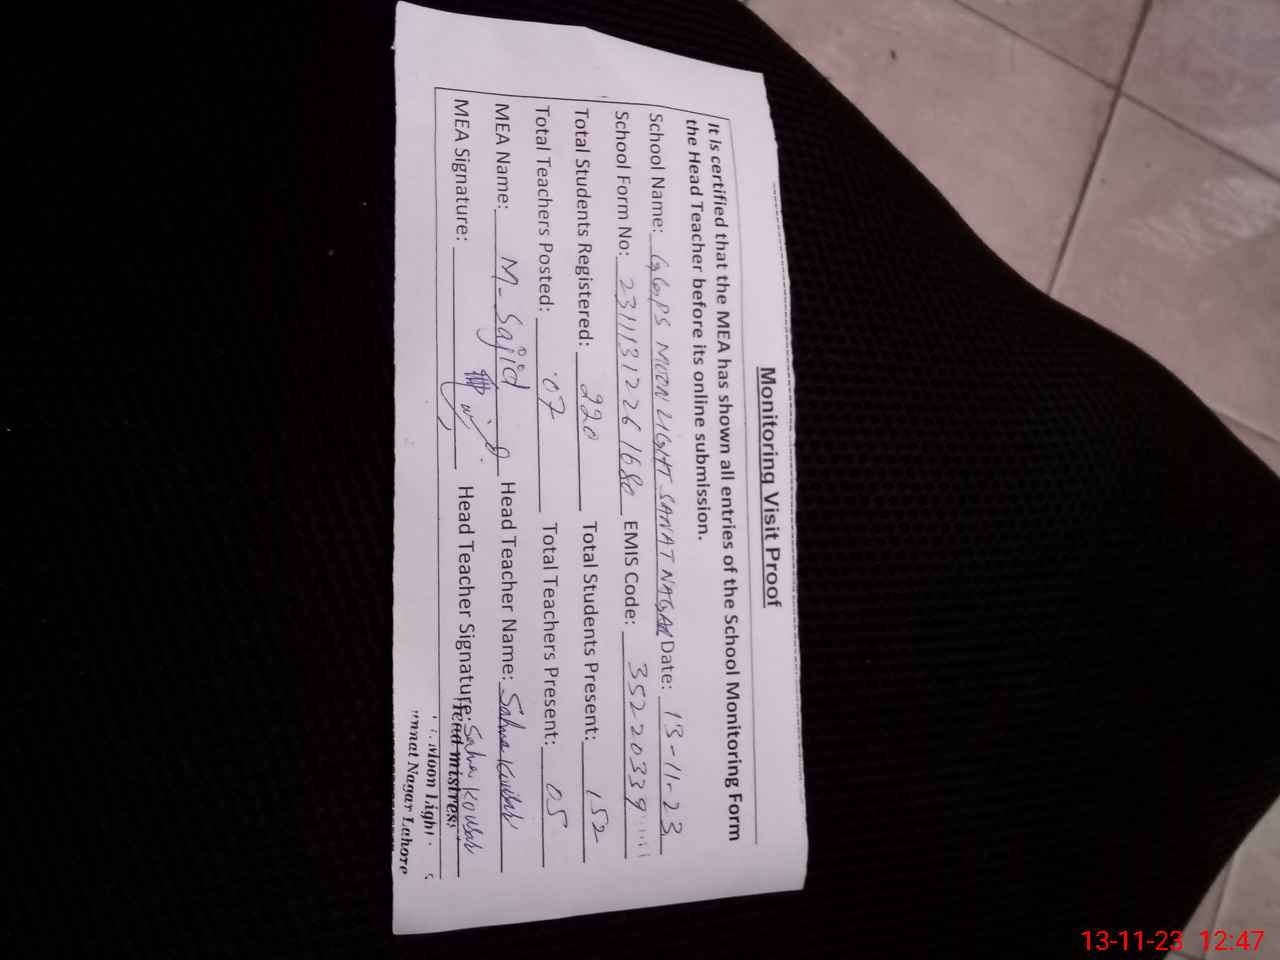 Monitoring Visit Proof
It is certified that the MEA has shown all entries of the School Monitoring Form
the Head Teacher before its online submission.
School Name: GGPS MOON LIGHT SANAT NAGAR Date: 13-11-23
School Form No: 231113122261680 EMIS Code: 35220339
Total Students Registered: 220 Total Students Present: 152
Total Teachers Posted: 07 Total Teachers Present: 05
MEA Name: M-Sajid Head Teacher Name: Kousar
MEA Signature: Head Teacher Signature: Kousar
Head mistress
Moon Light
Nagar Lahore
13-11-23 12:47